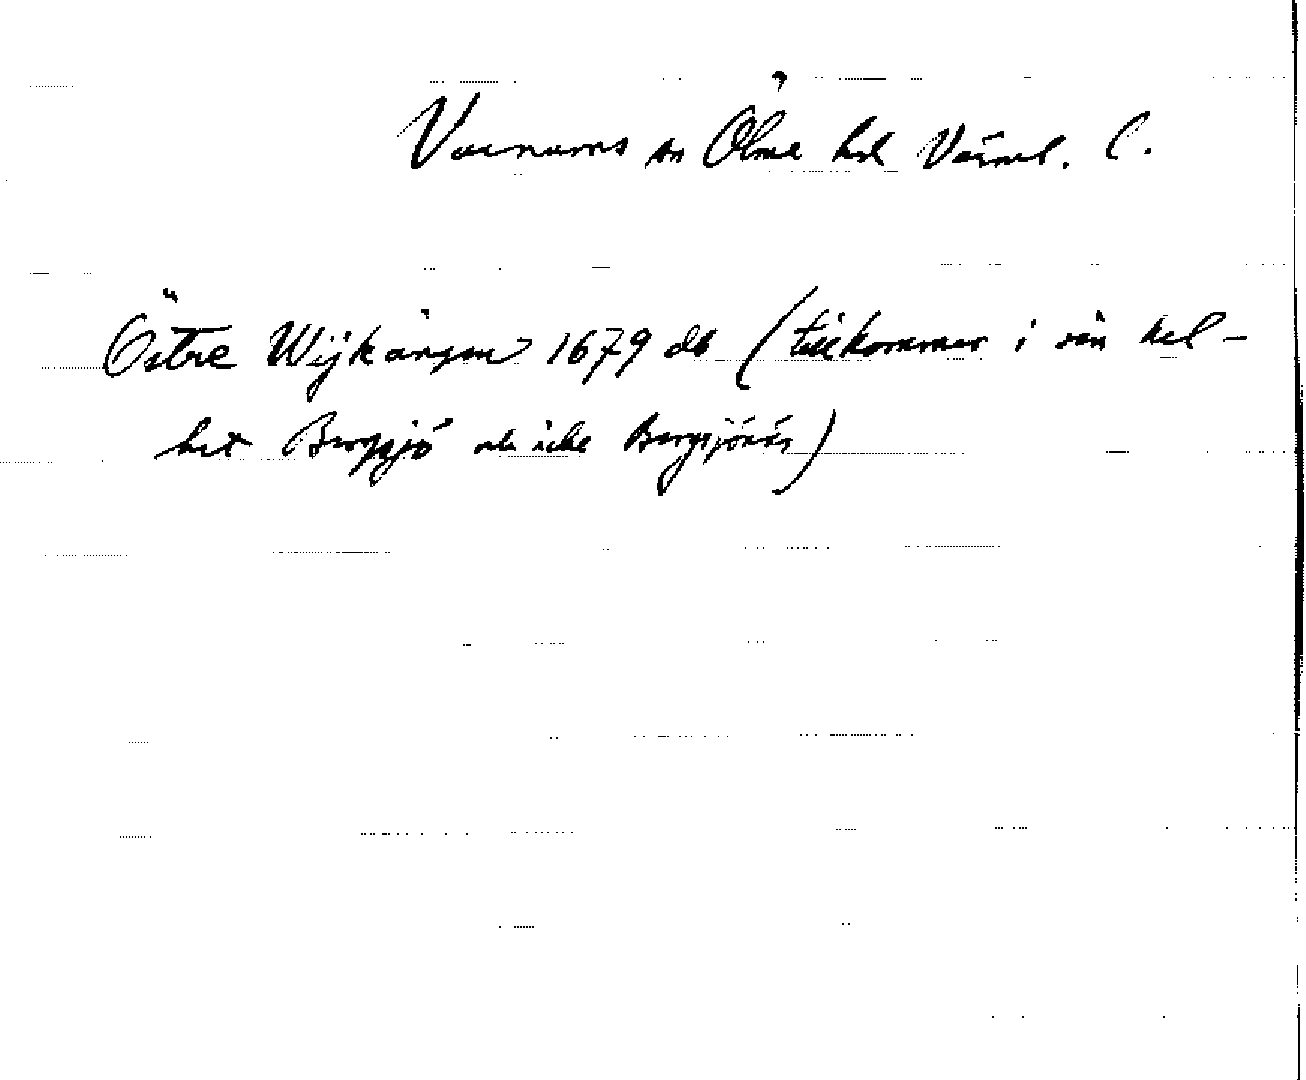 Varnums sn Ölme hd Värml. l.
Östre Wijkängen 1679 db (tillkommer i sin hel-
het Bergsjö och icke Bergsjönäs)